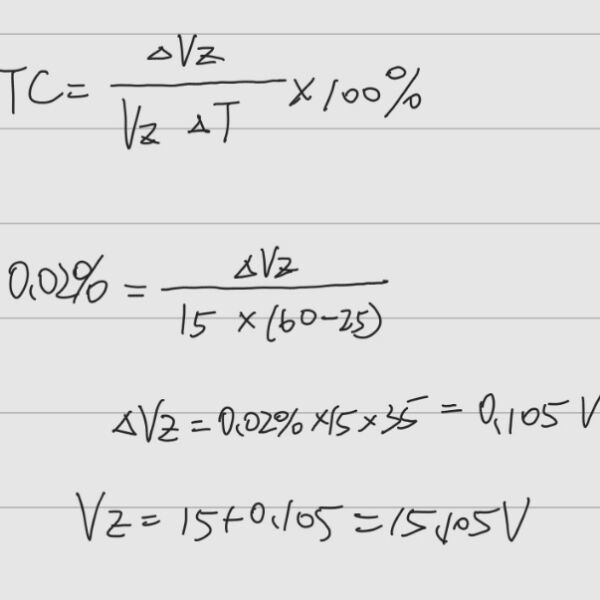 TC = ΔVz / Vz ΔT × 100%
0.02% = ΔVz / 15 × (60-25)
ΔVz = 0.02% × 15 × 35 = 0.105 V
Vz = 15 + 0.105 = 15.105 V